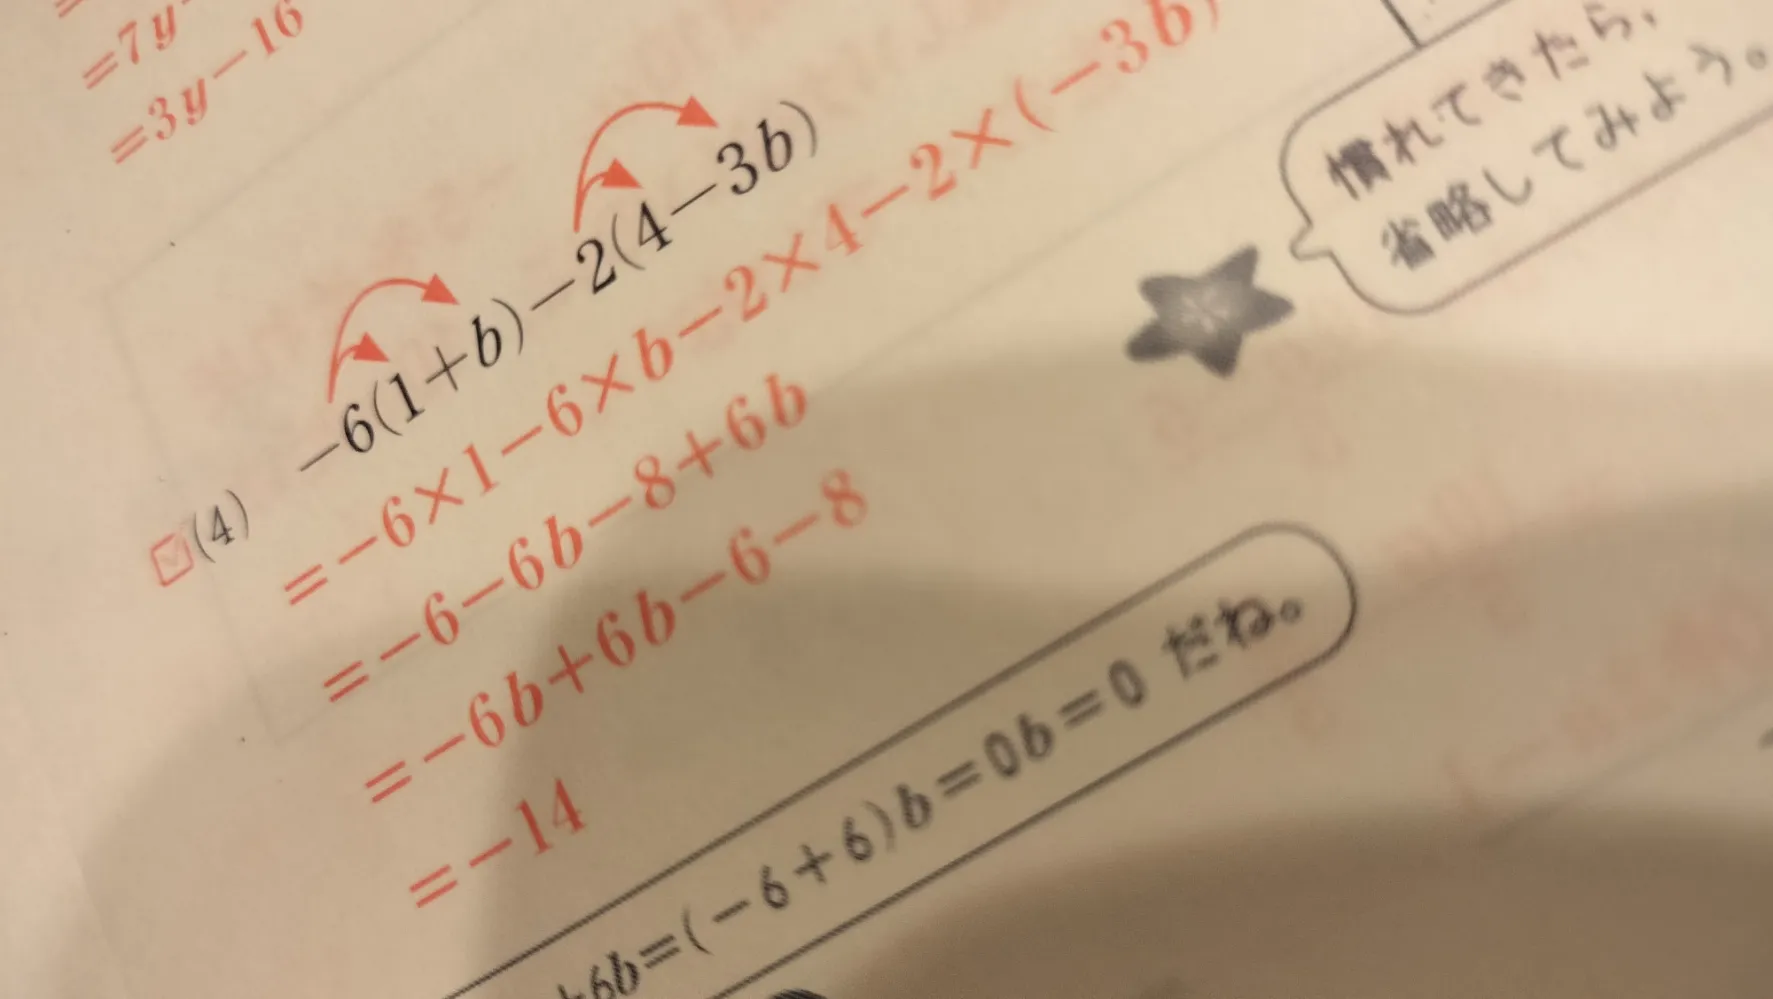 =7y-
=3y-16
(4) -6(1+b)-2(4-3b)
=-6×1-6×b-2×4-2×(-3b)
=-6-6b-8+6b
=-6b+6b-6-8
=-14
慣れてきたら、
省略してみよう。
+6b=(-6+6)b=0b=0 だね。